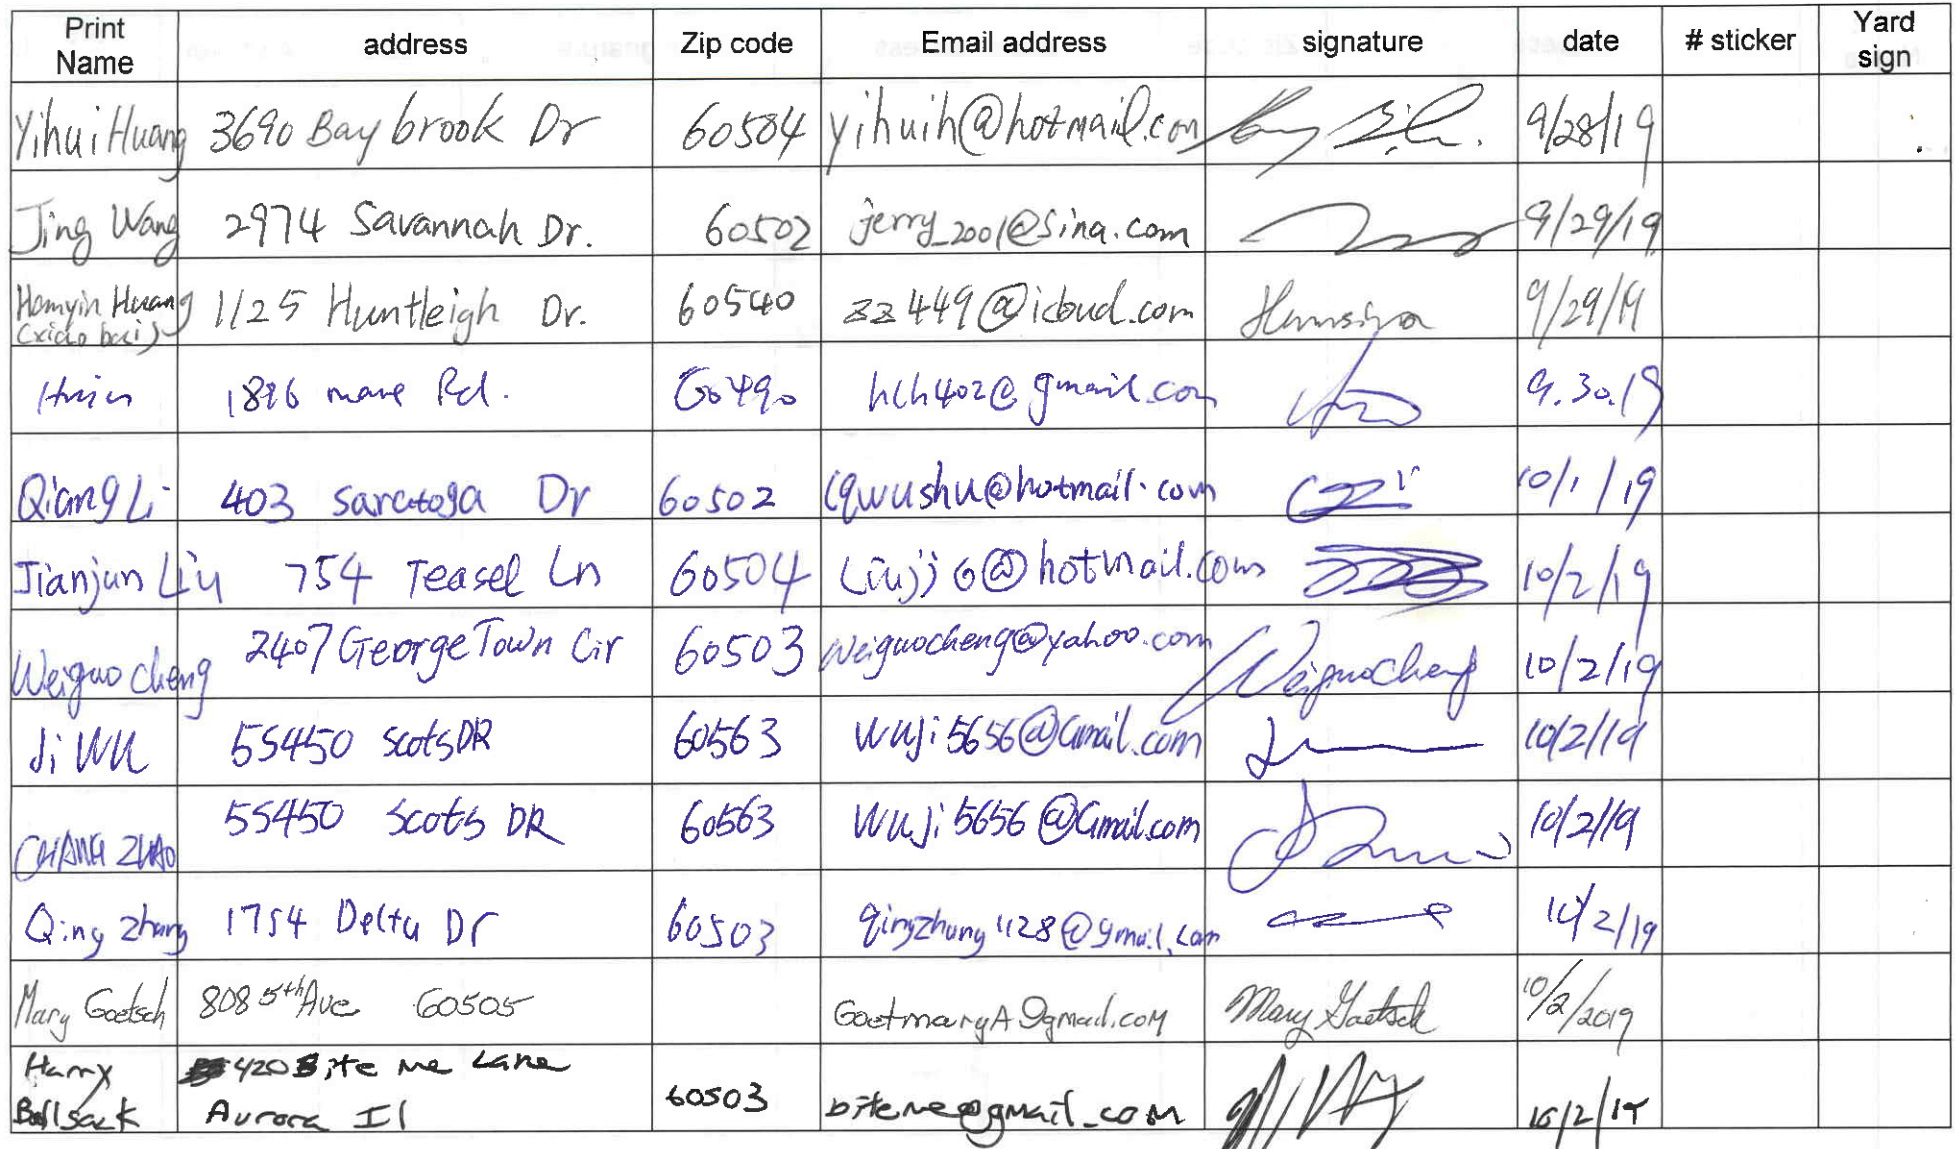 Print Name address Zip code Email address signature date # sticker Yard sign
Yihui Huang 3690 Baybrook Dr 60504 yihuih@hotmail.com 9/28/19
Jing Wang 2974 Savannah Dr. 60502 jerry_2001@sina.com 9/29/19
Huang 1125 Huntleigh Dr. 60540 zz449@icloud.com 9/29/19
60490 hch402@gmail.com 9.30.19
Qiang Li 403 Saratoga Dr 60502 lqwushu@hotmail.com 10/1/19
Jianjun Liu 754 Teasel Ln 60504 Liujj6@hotmail.com 10/2/19
Weiguo Cheng 2407 GeorgeTown Cir 60503 Weiguocheng@yahoo.com WeiguoCheng 10/2/19
Ji WU 5S450 Scots DR 60563 WUJi5656@Gmail.com 10/2/19
CHANG ZHAO 5S450 Scots DR 60563 WUJi5656@Gmail.com 10/2/19
Qing Zhang 1754 Delta Dr 60503 qingzhang1128@gmail.com 10/2/19
Mary Goetsch 808 5th Ave 60505 GoetmaryA@gmail.com Mary Goetsch 10/2/2019
Harry Ballsack 420 Bite me Lane Aurora Il 60503 biteme@gmail.com 10/2/19